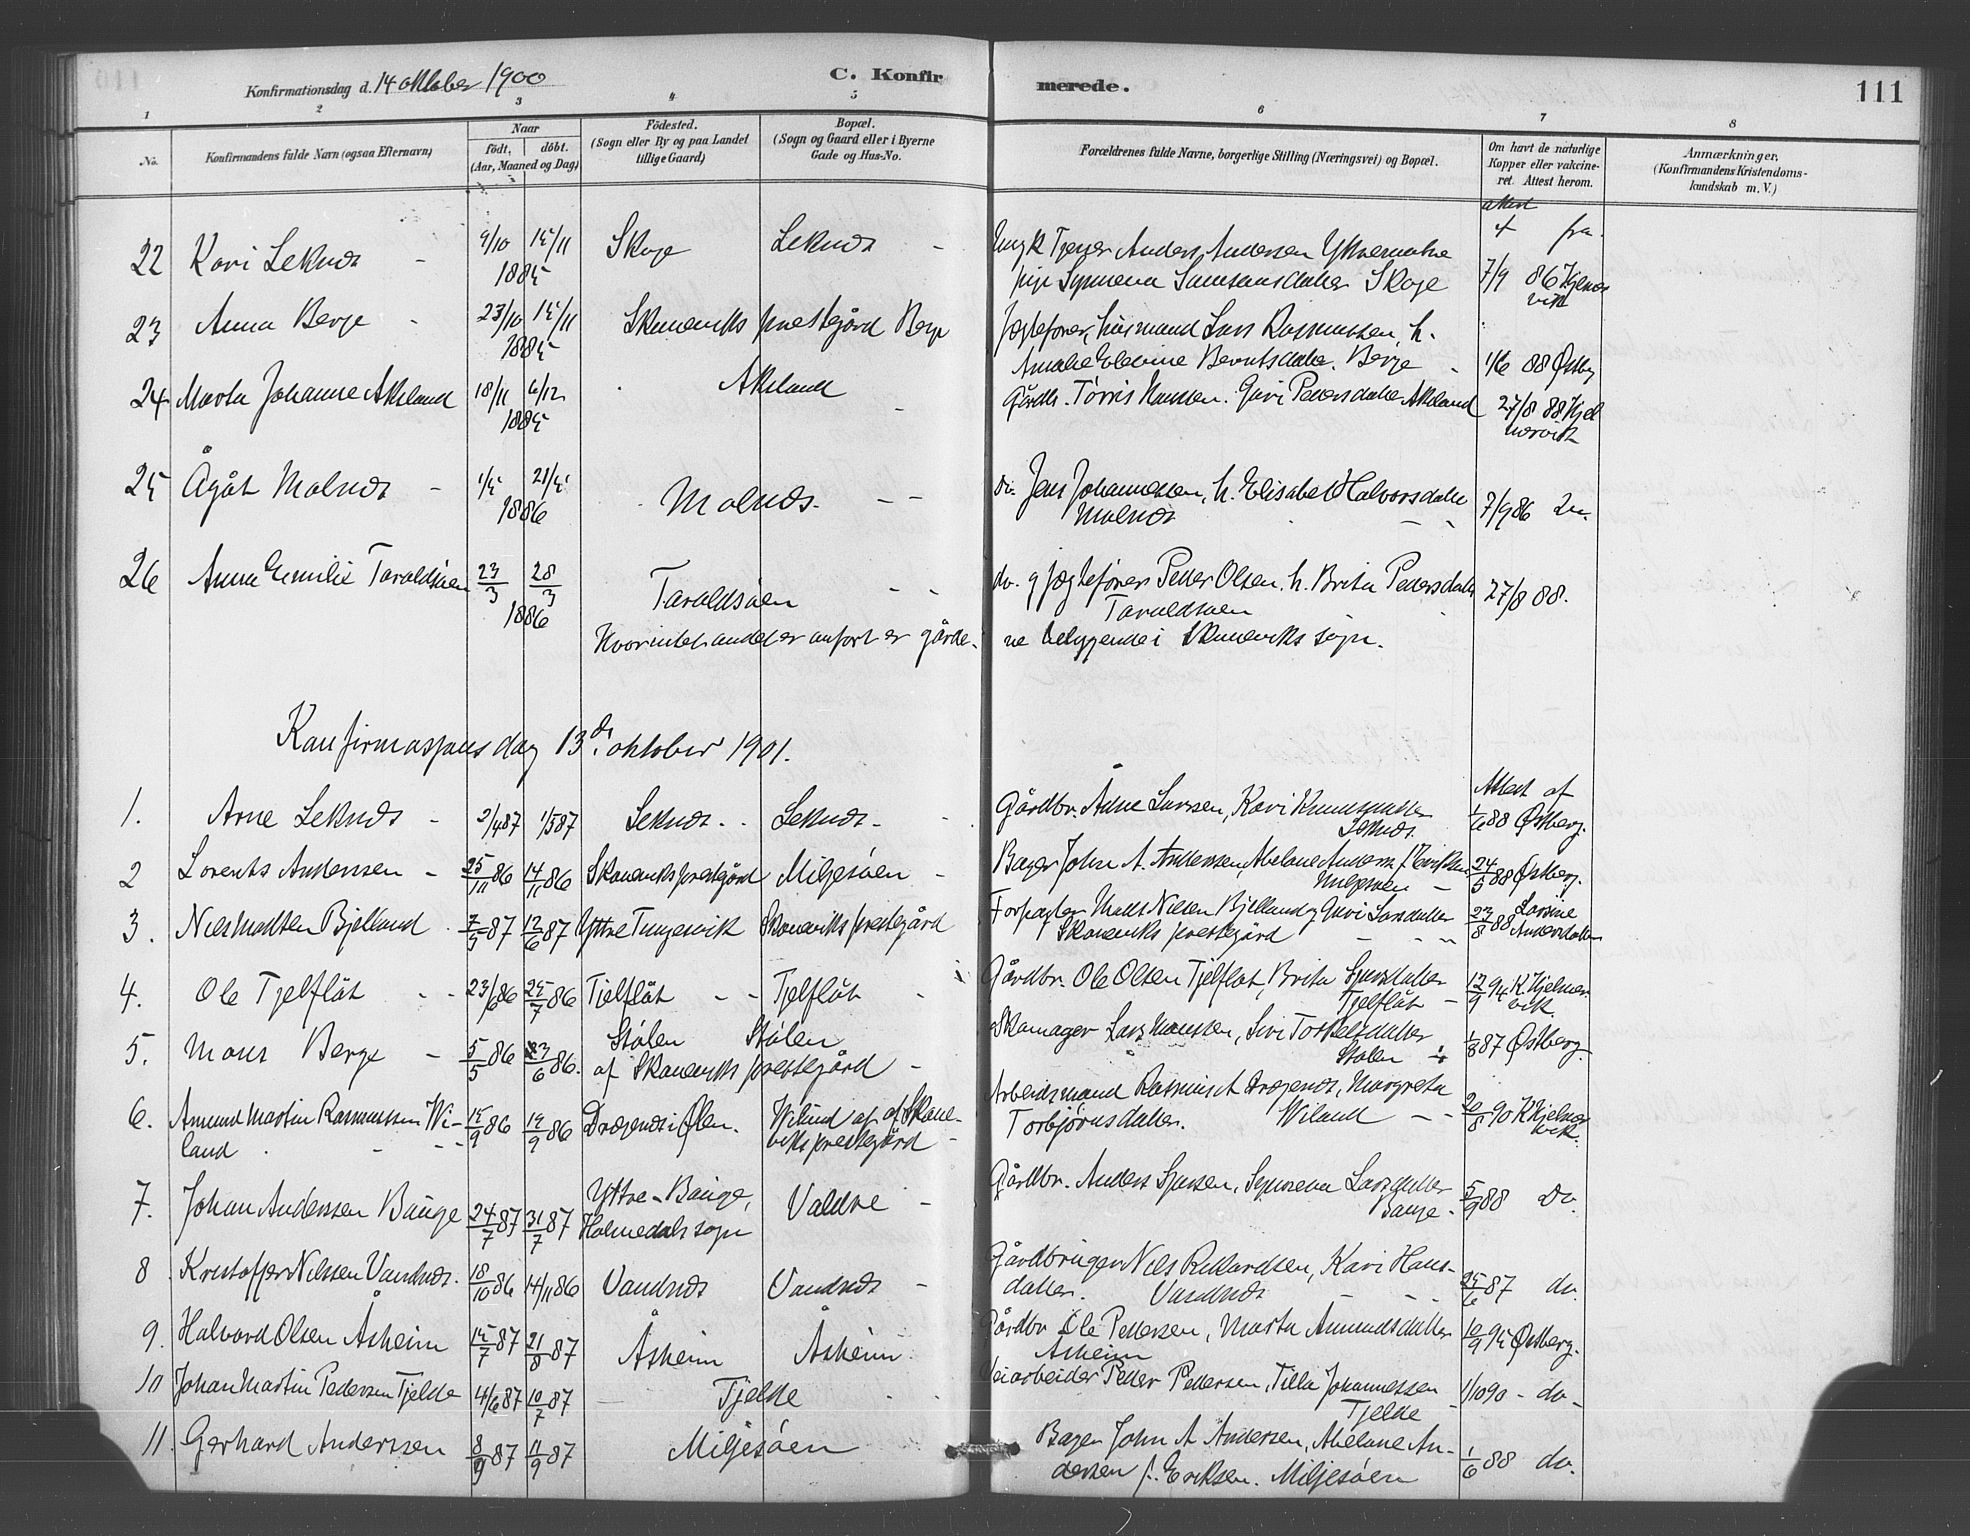 Konfirmationsdag d. 14 oktober 1900
C. Konfir merede.
111
1 2 3 4 5 6 7 8
No.
Konfirmandens fulde Navn (ogsaa Efternavn)
Naar
født, døbt.
(Aar, Maaned og Dag)
Fødested.
(Sogn eller By og paa Landet
tillige Gaard)
Bopæl.
(Sogn og Gaard eller i Byerne
Gade og Hus-No.
Forældrenes fulde Navne, borgerlige Stilling (Næringsvei) og Bopæl.
Om havt de naturlige
Kopper eller vakcine-
ret. Attest herom.
Anmærkninger.
(Konfirmandens Kristendoms-
kundskab m. V.)
22 Kari Leknes 9/10 15/11 Skoge Leknes Ungk Anders Andersen
1885 pige Synneva Samsonsdatter Skoge 7/9 86 Kjelnes
vik
23 Anna Berge 23/10 15/11 Skaneviks prestegård Berge Jægtefører, husmand Lars Rasmussen, h.
1885 Amalie Elevine Berntsdatter. Berge 1/6 88 Østberg
24 Marta Johanne Akeland 18/11 6/12 Akeland Gårdbr. Tørris Hanssen. Guri Pedersdatter Akeland 27/8 88 Kjel
1885 nesvik
25 Ågåt Molnes 1/5 21/5 Molnes. do. Jens Johannessen, h. Elisabet Halvorsdatter
1886 Molnes 7/9 86
26 Anna Emilie Taraldsøen 23/3 28/3 Taraldsøen do. g jægtefører Peder Olsen. h. Brita Pedersdatter 27/8 88.
1886 Taraldsøen
Hvor intet andet er anført er gårde-
ne beliggende i Skaneviks sogn.
Konfirmasjonsdag 13de oktober 1901.
Attest af
1. Arne Leknes 2/4 87 1/5 87 Leknes. Leknes Gårdbr. Arne Larssen, Kari Knudsdatter 1/6 88 Østberg.
Leknes.
2 Lorents Anderssen 25/10 86 14/11 86 Skaneviks prestegård Miljesøen Bager John A. Anderssen, Abelane Anderss f. Eriksen 24/5 88 Østberg.
Miljesøen
3. Nils Madsen Bjelland 7/5 87 12/6 87 Yttre Tungesvik Skaneviks prestegård Forpagter Mads Nilsen Bjelland g Guri Larsdatter 23/8 88 Larsine
Skaneviks prestegård Andersdatter
4. Ole Tjelflåt 23/6 86 25/7 86 Tjelflåt Tjelflåt Gårdbr. Ole Olsen Tjelflåt, Brita Sjursdatter 12/9 94 K. Kjelnes-
Tjelflåt vik.
5. Mons Berge 5/5 86 23/6 86. Stølen Stølen Skomager Lars Monssen, Siri Torkelsdatter 1/8 87 Østberg.
af Skaneviks prestegård Stølen
6. Amund Martin Rasmussen Wi- 15/9 86 19/9 86 Dragenes i Ølen. Wiland af af Skane- Arbeidsmand Rasmus A Dragenes, Margreta 20/8 90 K Kjelnes
land viks prestegård Torbjørnsdatter. Wiland vik.
7. Johan Anderssen Bauge 24/7 87 31/7 87 Yttre-Bauge, Valdre Gårdbr. Anders Sjursen, Synneva Larsdatter 5/9 88 Do.
Holmedals sogn Bauge.
8 Kristoffer Nilssen Vandnes. 18/10 86 14/11 86 Vandnes Vandnes Gårdbruger Nils Rikardsen, Kari Hans-
datter. Vandnes 25/6 87 do.
9. Halvard Olsen Åsheim 15/7 87 21/8 87 Åsheim Åsheim. Gårdbr Ole Pedersen, Marta Amundsdatter 10/9 95 Østberg.
Åsheim
10 Johan Martin Pedersen Tjelde 4/6 87 10/7 87 Tjelde Veiarbeider Peder Pedersen, Tilla Johannessen 1/10 90 - do -
Tjelde
11. Gerhard Anderssen 8/9 87 11/9 87 Miljesøen Bager John A Andersen, Abelane An-
dersen f. Eriksen. Miljesøen 1/6 88 do.